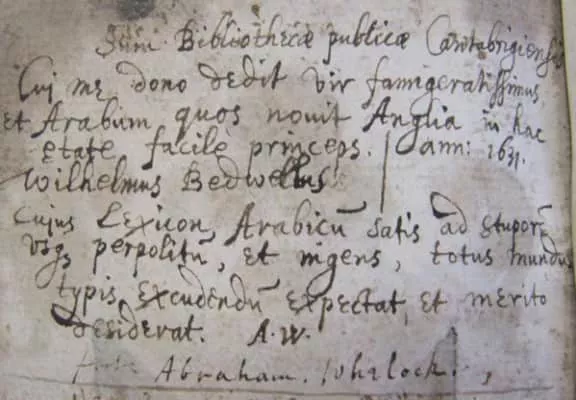 Sum Bibliothecæ publicæ Cantabrigiensis
Cui me dono dedit vir famigeratissimus,
et Arabum quos novit Anglia in hac
ętate facilè princeps. ann: 1631.
Wilhelmus Bedwellus
Cujus Lexicon, Arabicũ satis ad stuporẽ
usq; perpolitũ, et ingens, totus mundus
typis excudendũ expectat, et merito
desiderat. A. W.
Abraham. Whelock.